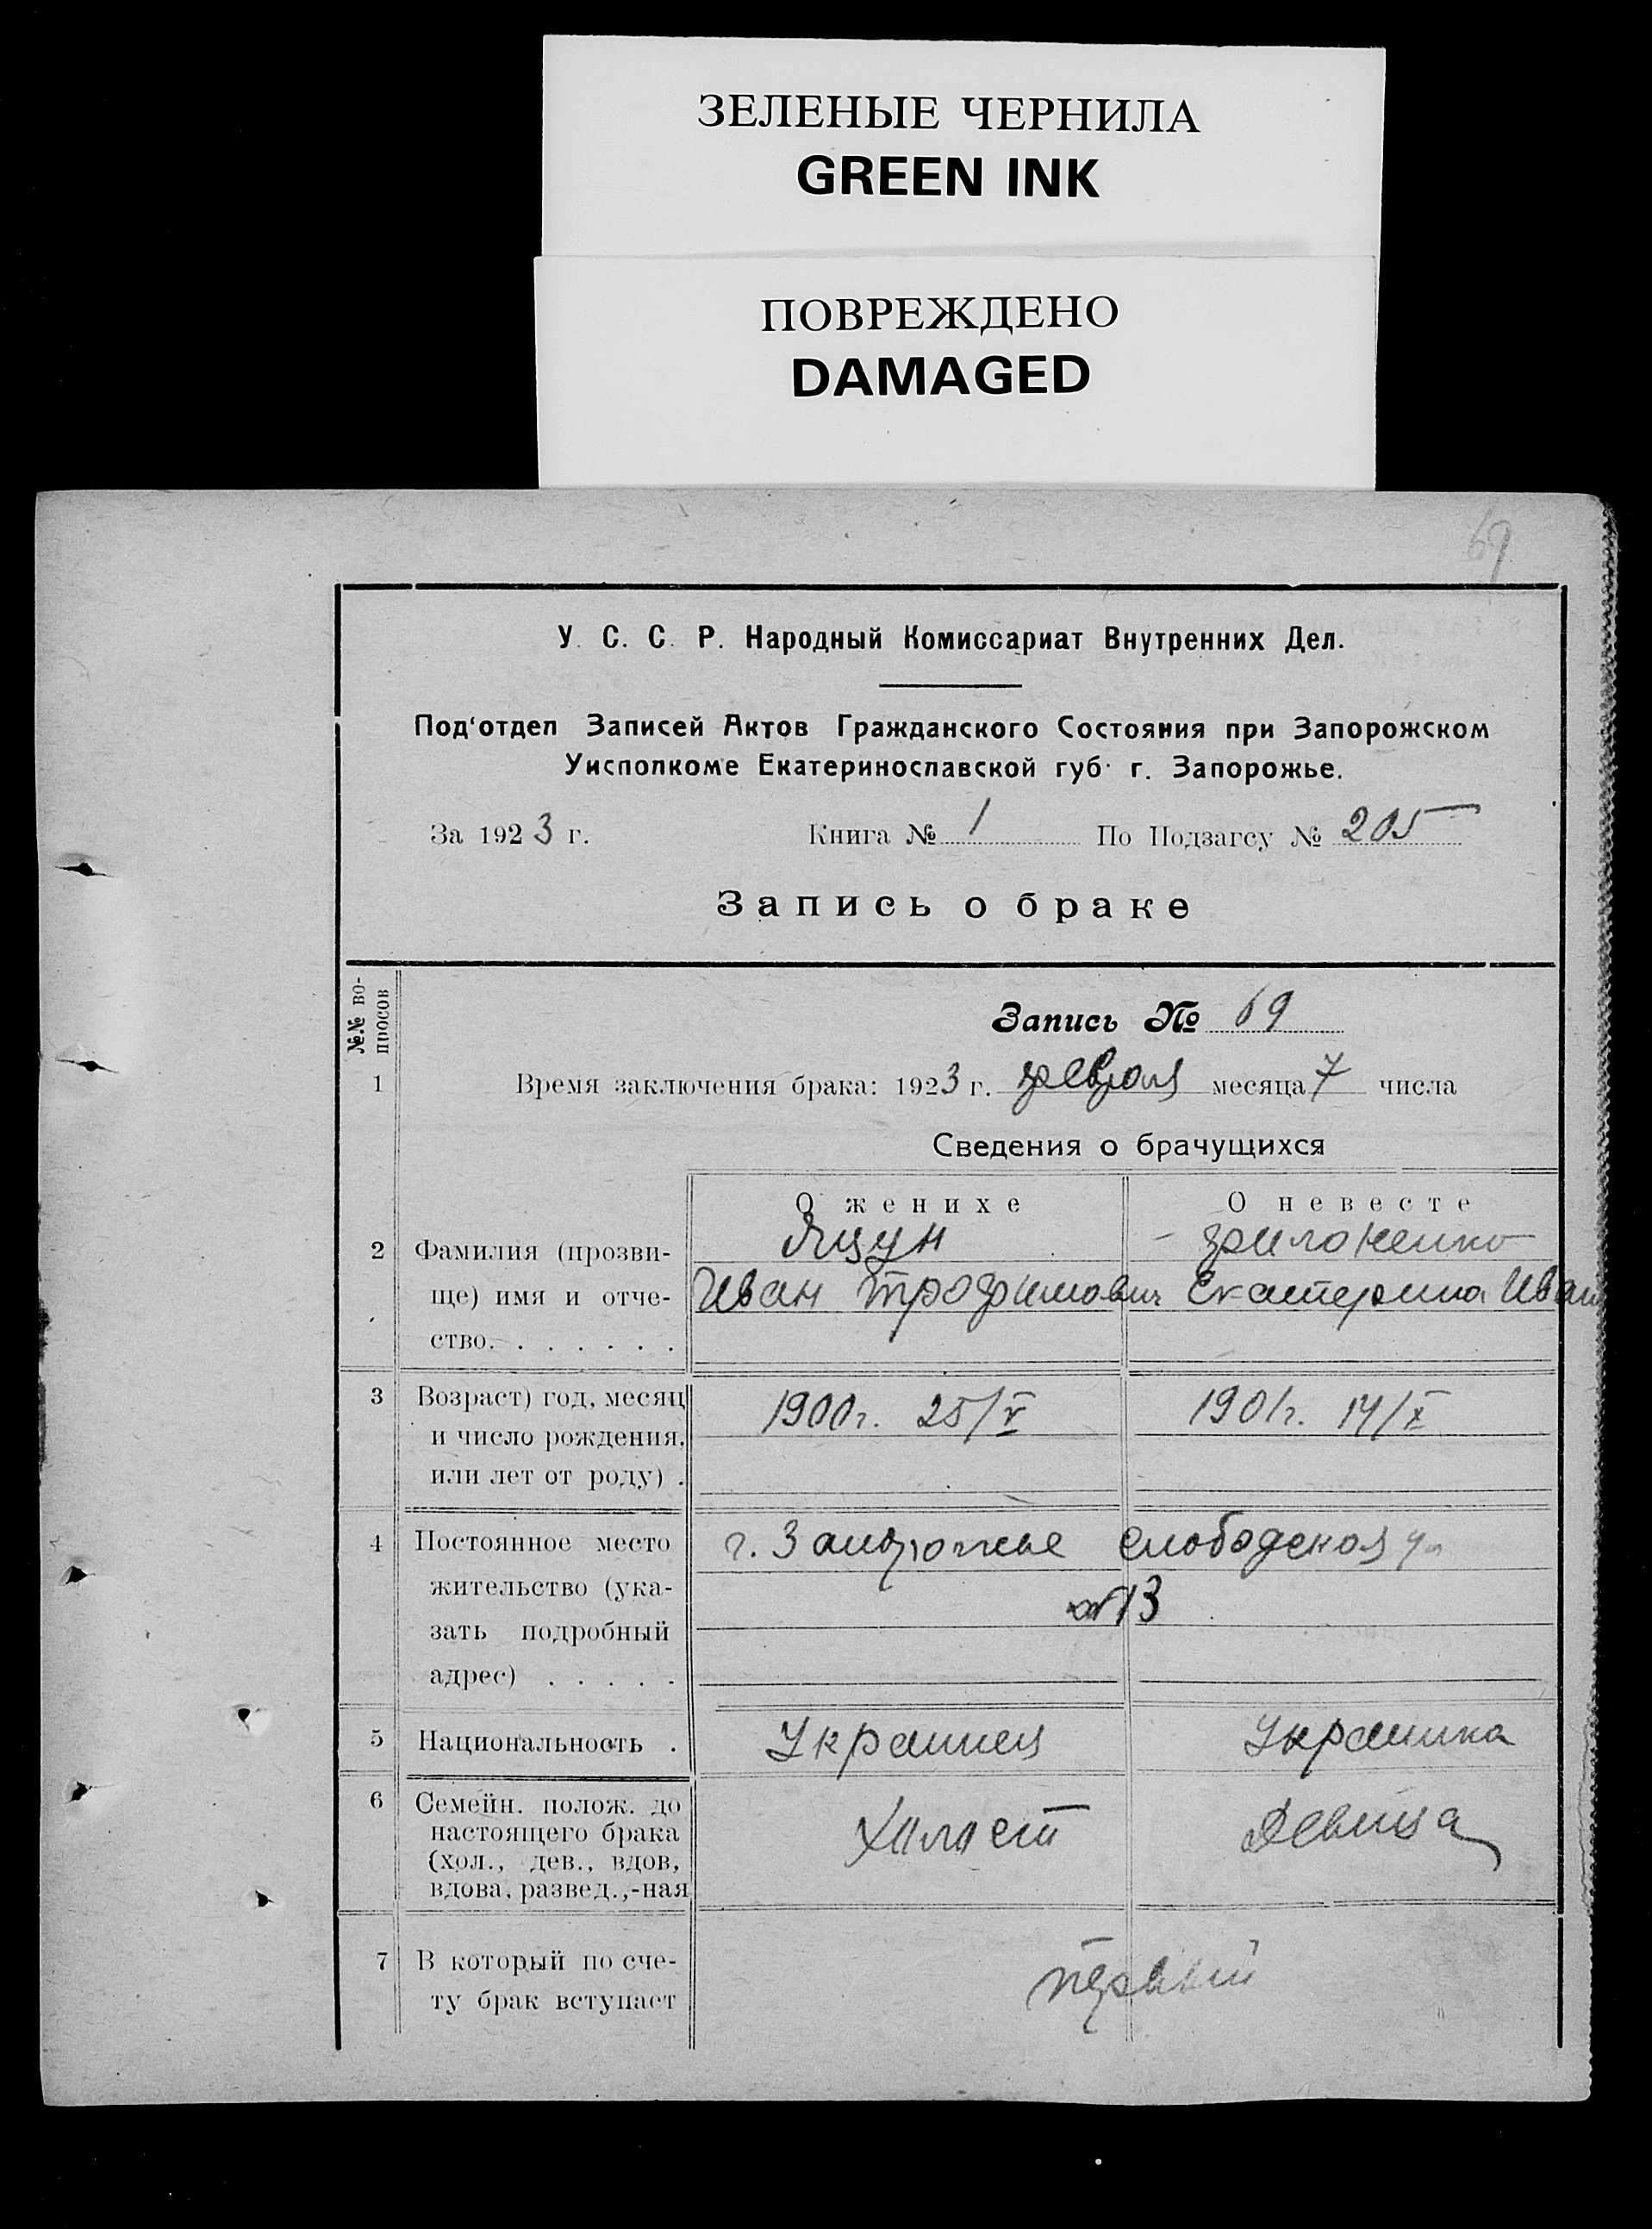 ЗЕЛЕНЫЕ ЧЕРНИЛА
GREEN INK
ПОВРЕЖДЕНО
DAMAGED
69
У. С. С. Р. Народный Комиссариат Внутренних Дел.
Под'отдел Записей Актов Гражданского Состояния при Запорожском
Уисполкоме Екатеринославской губ. г. Запорожье.
За 1923 г. Книга № 1 По Подзагсу № 205
Запись о браке
№№ во-
просов
Запись № 69
1 Время заключения брака: 1923 г. февраля месяца 7 числа
Сведения о брачущихся
О женихе О невесте
Яцун Филоненко
2 Фамилия (прозви-
ще) имя и отче- Иван Трофимович Екатерина Иван
ство. . . . . . .
3 Возраст) год, месяц 1900г. 25/V 1901г. 14/X
и число рождения,
или лет от роду) .
4 Постоянное место г. Запорожье Слободская ул
жительство (ука- №13
зать подробный
адрес) . . . . .
5 Национальность . Украинец Украинка
6 Семейн. полож. до Холост Девица
настоящего брака
(хол., дев., вдов,
вдова, развед.,-ная
7 В который по сче- первый
ту брак вступает